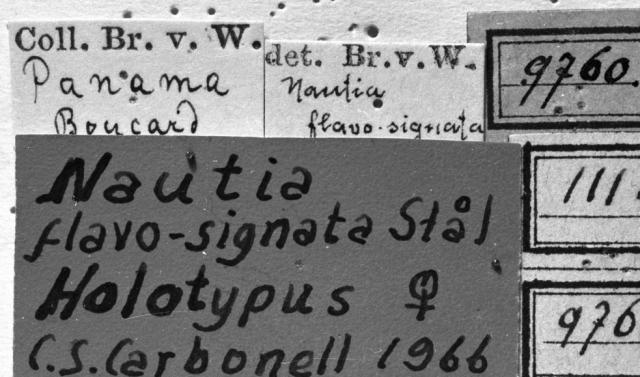 Coll. Br. v. W.
Panama
Boucard
det. Br. v. W.
Nautia
flavo-signata
9760
111
976
Nautia
flavo-signata Stål
Holotypus ♀
C.S. Carbonell 1966